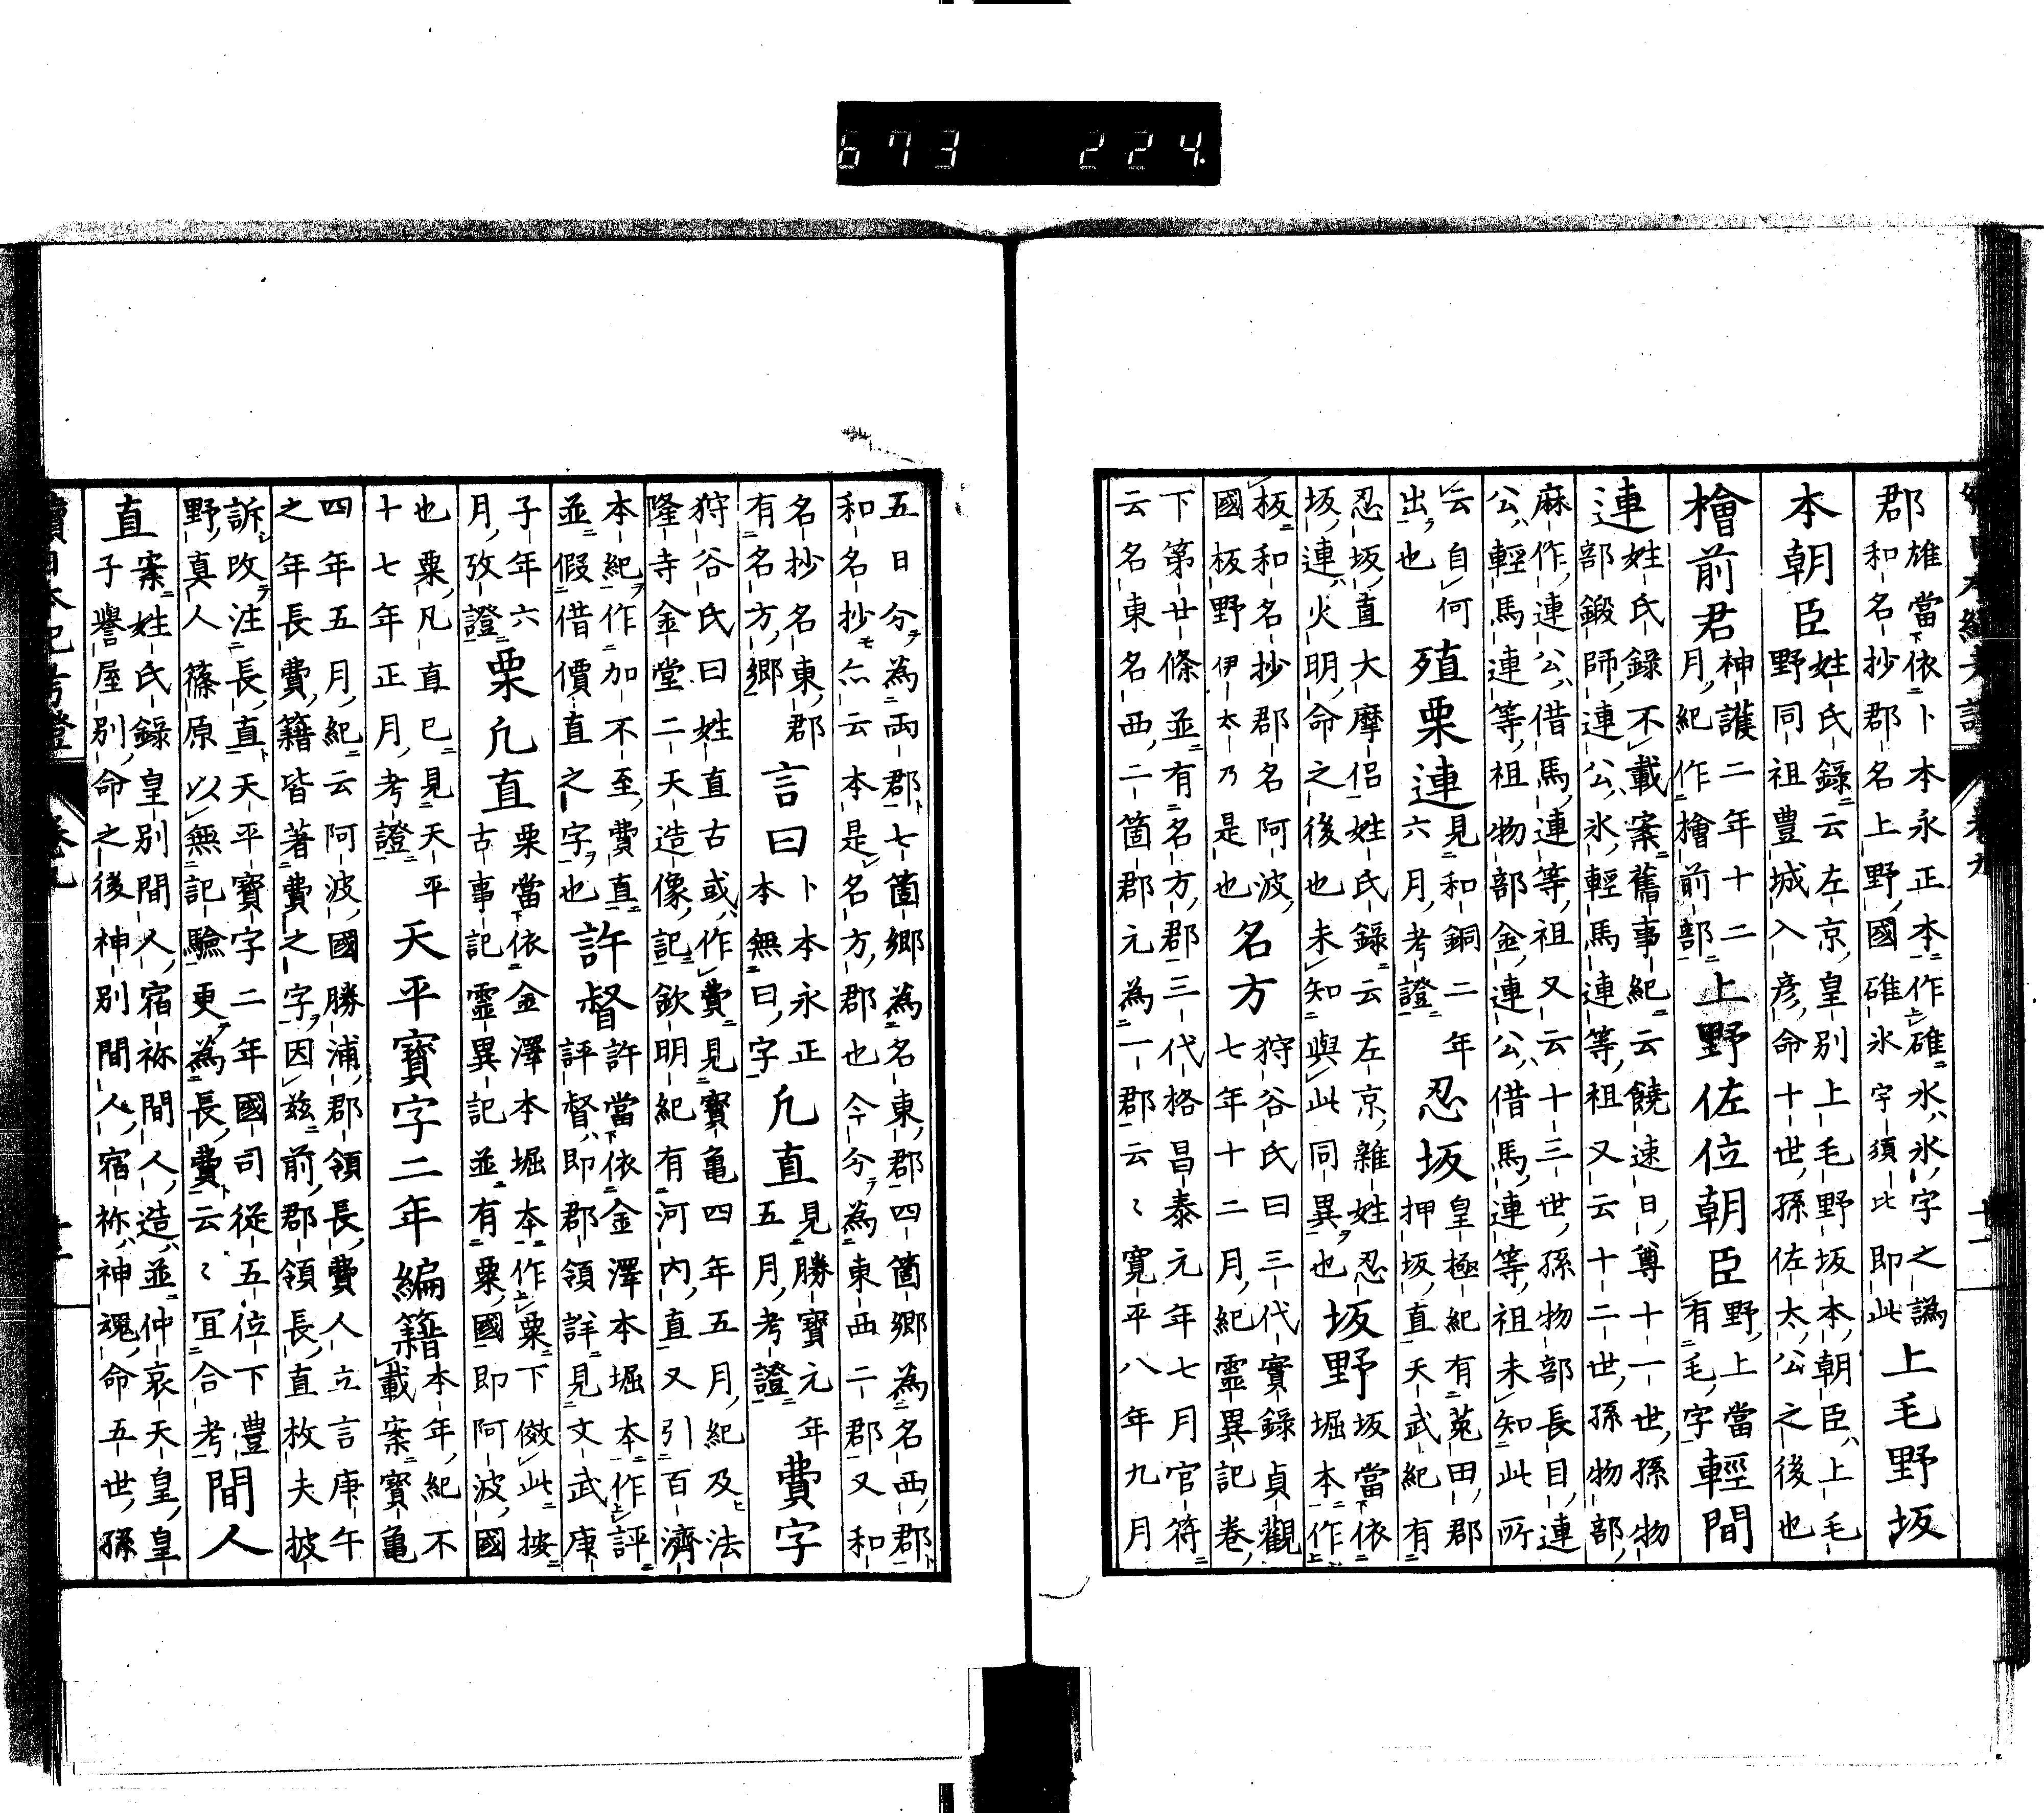 673 224.
續日本紀考證 卷九 十一
郡
雄當依卜本永正本作碓水氷字之譌
和名抄郡名上野國碓氷字須比即此
上毛野坂
本朝臣
姓氏錄云左京皇別上毛野坂本朝臣上毛
野同祖豊城入彦命十世孫佐太公之後也
檜前君
神護二年十二
月紀作檜前部
上野佐位朝臣
野上當
有毛字
輕間
連
姓氏錄不載案舊事紀云饒速日尊十一世孫物
部鍛師連公氷輕馬連等祖又云十二世孫物部
麻作連公借馬連等祖又云十三世孫物部長目連
公輕馬連等祖物部金連公借馬連等祖未知此所
云自何
出也
殖栗連
見和銅二年
六月考證
忍坂
皇極紀有菟田郡
押坂直天武紀有
忍坂直大摩侶姓氏錄云左京雜姓忍
坂連火明命之後也未知與此同異也
坂野
坂當依
堀本作
板和名抄郡名阿波
國板野伊太乃是也
名方
狩谷氏曰三代實錄貞觀
七年十二月紀靈異記卷
下第廿條並有名方郡三代格昌泰元年七月官符
云名東名西二箇郡元為一郡云〻寛平八年九月
五日分為兩郡七箇鄉為名東郡四箇鄉為名西郡
和名抄亦云本是名方郡也今分為東西二郡又和
名抄名東郡
有名方鄉
言曰
卜本永正
本無曰字
凡直
見勝寶元年
五月考證
費字
狩谷氏曰姓直古或作費見寶亀四年五月紀及法
隆寺金堂二天造像記欽明紀有河内直又引百濟
本紀作加不至費直
並假借價直之字也
許督
許當依金澤本堀本作評
評督即郡領詳見文武庚
子年六
月攷證
栗凡直
栗當依金澤本堀本作粟下倣此按
古事記靈異記並有粟國即阿波國
也粟凡直已見天平
十七年正月考證
天平寳字二年編籍
本年紀不
載案寶亀
四年五月紀云阿波國勝浦郡領長費人立言庚午
之年長費籍皆著費之字因茲前郡領長直枚夫披
訴改注長直天平寳字二年國司從五位下豊
野真人篠原以無記驗更為長費云〻冝合考
間人
直
案姓氏錄皇別間人宿祢間人造並仲哀天皇皇
子譽屋別命之後神別間人宿祢神魂命五世孫
續日本紀考證 卷九